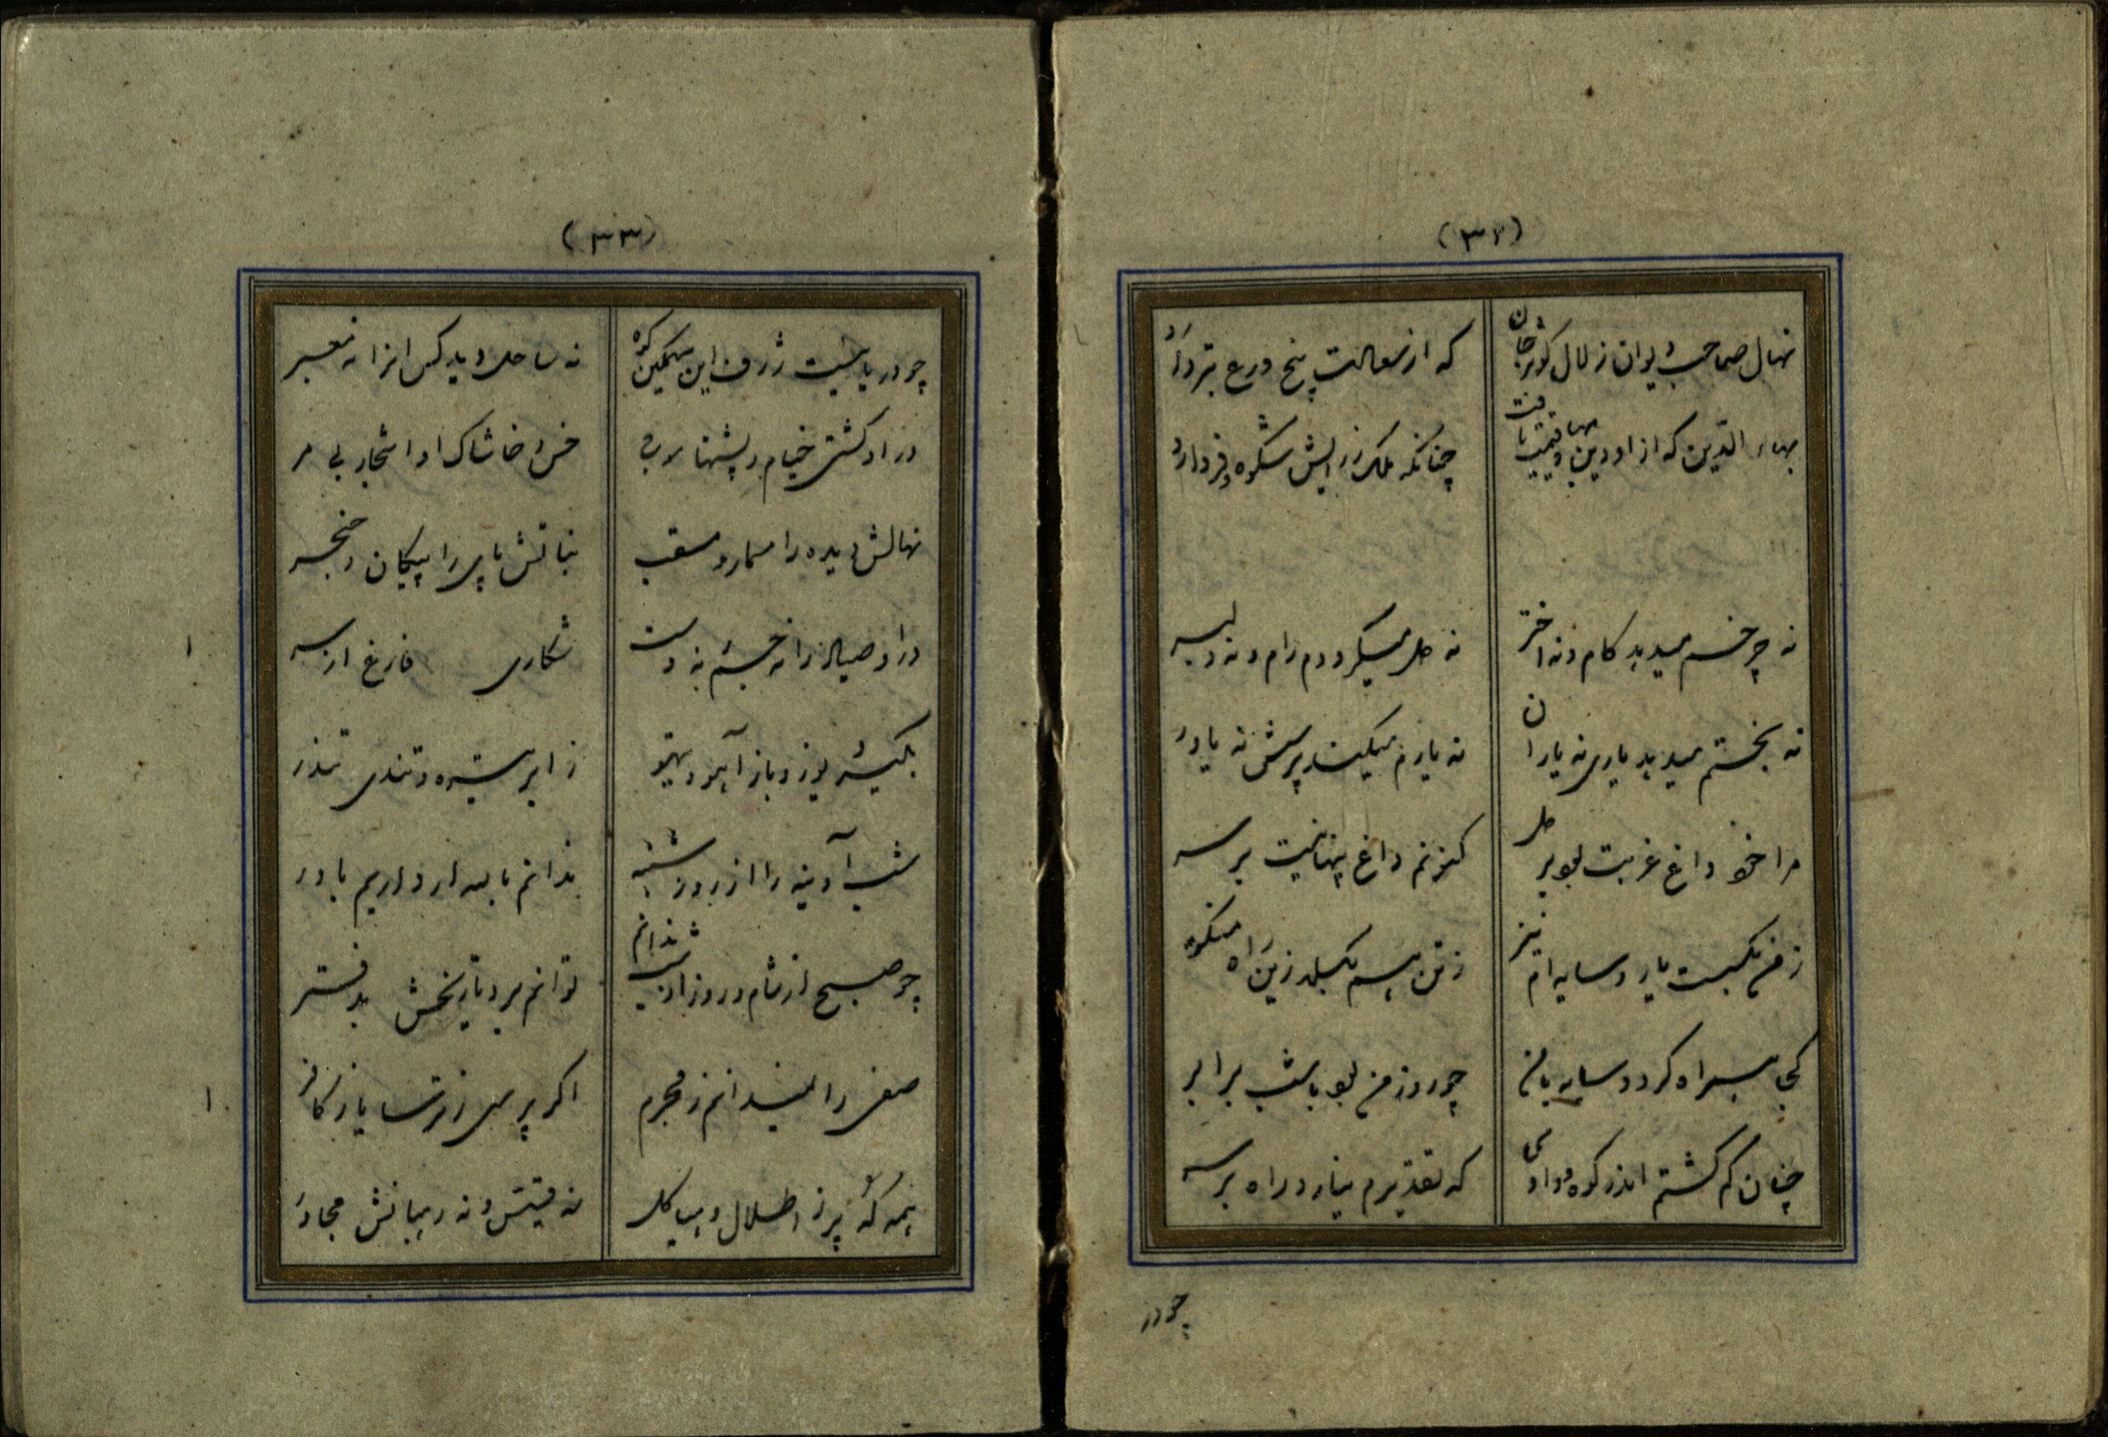 (۳۲)
نهال صاحب دیوان زلال کوثر جان
که از معالت پنج درع بتر دارد
بهاء الدین که از او دین بها و قیمت یافت
چنانکه ملک زرایش شکوه و فر دارد
نه چرخم میدهد کام و نه اختر
نه دل میگرددم رام و نه دلبر
نه بختم میدهد یاری نه یاران
نه یارم میکند پرسش نه یاور
مرا خود داغ غربت بود بر دل
کنونم داغ پنهانیت بر سر
ز من بگسست یار و سایه ام نیز
ز تن هم بگسلد زین راه منکر
کجا همراه گردد سایه با من
چو روز من بود با شب برابر
چنان گم گشتم اندر کوه و وادی
که تقدیرم نیارد راه بر سر
چو در
(۳۳)
چو دریائیست ژرف این سهمگین کوه
نه ساحل دید کس انرا نه معبر
در او کشتی خیام و پشتها موج
خس و خاشاک او اشجار بی مر
نهالش دیده را مسمار و مثقب
نباتش پای را پیکان و خنجر
در او صیاد را نه جسته بد دست
شکاری فارغ از
بلکیسه یوز و باز آهو و تیهو
ز ابر تیره و تندی تندر
شب آدینه را از روز شنبه
ندانم با سه از دارم باور
چو صبح از شام و روز از شب ندانم
توانم برد تاریخش بدفتر
صفر را میندانم ز محرم
اگر پرسی ز ترسا یا ز کافر
همه که پر ز اطلال و هیاکل
نه قسیس و نه رهبانش مجاور